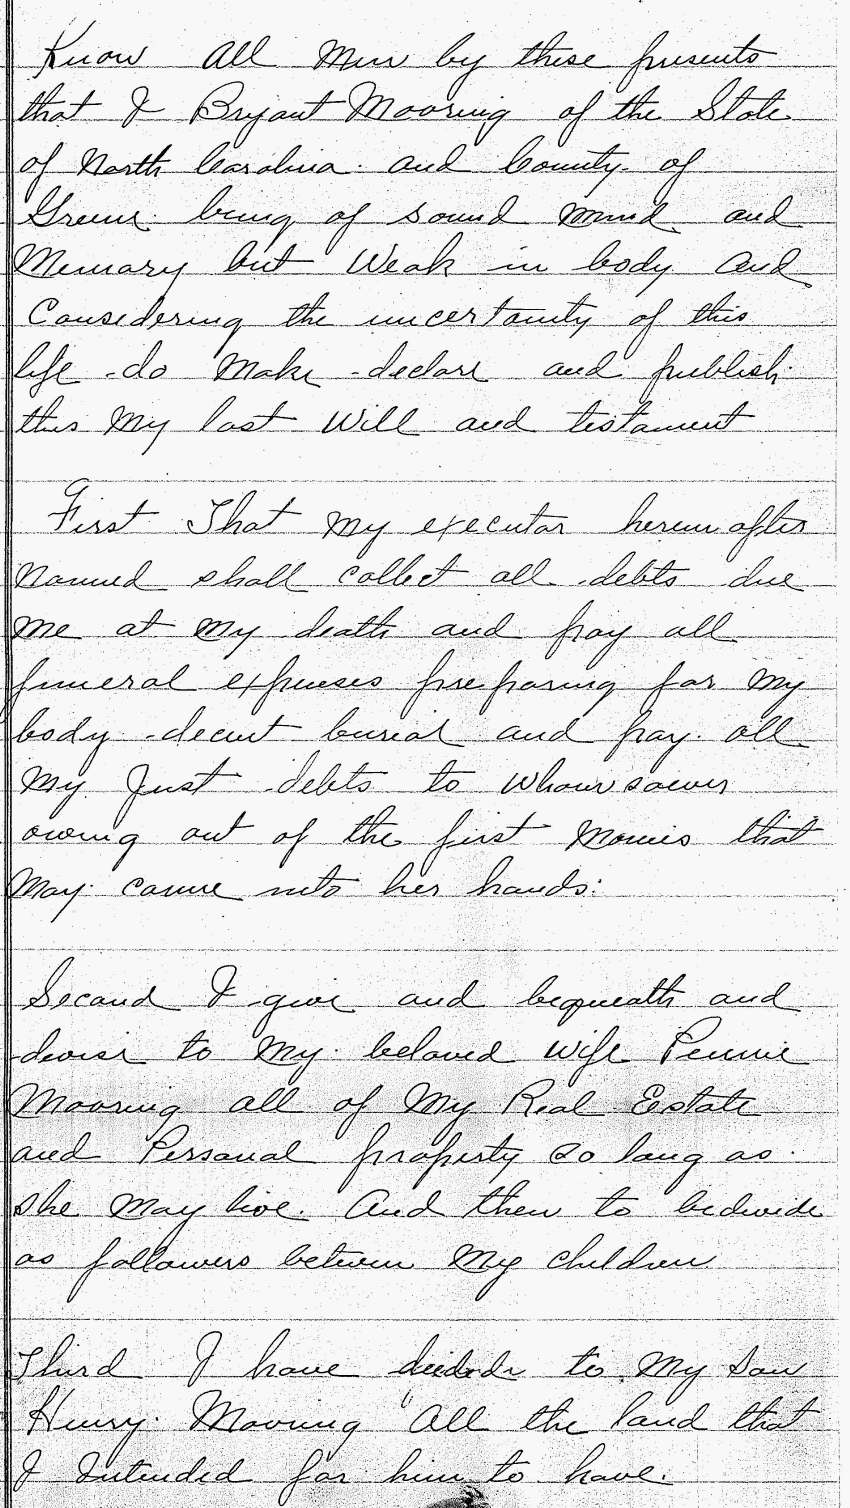 Know All Men by these presents
that I Bryant Mooring of the State
of North Carolina and County of
Greene being of sound mind and
Memory but Weak in body and
Considering the uncertainty of this
life do Make declare and publish
this My last Will and testament
First That My executor herein after
Named shall collect all debts due
Me at My death and pay all
funeral expenses preparing for My
body decent burial and pay all
My Just debts to Whomsoever
owing out of the first Monies that
May come into her hands.
Second I give and bequeath and
devise to My beloved Wife Pennie
Mooring all of My Real Estate
and Personal property so long as
she May live. And then to bedivide
as followers between My children
Third I have deeded to My Son
Henry Mooring "All the land that
I Intended for him to have.